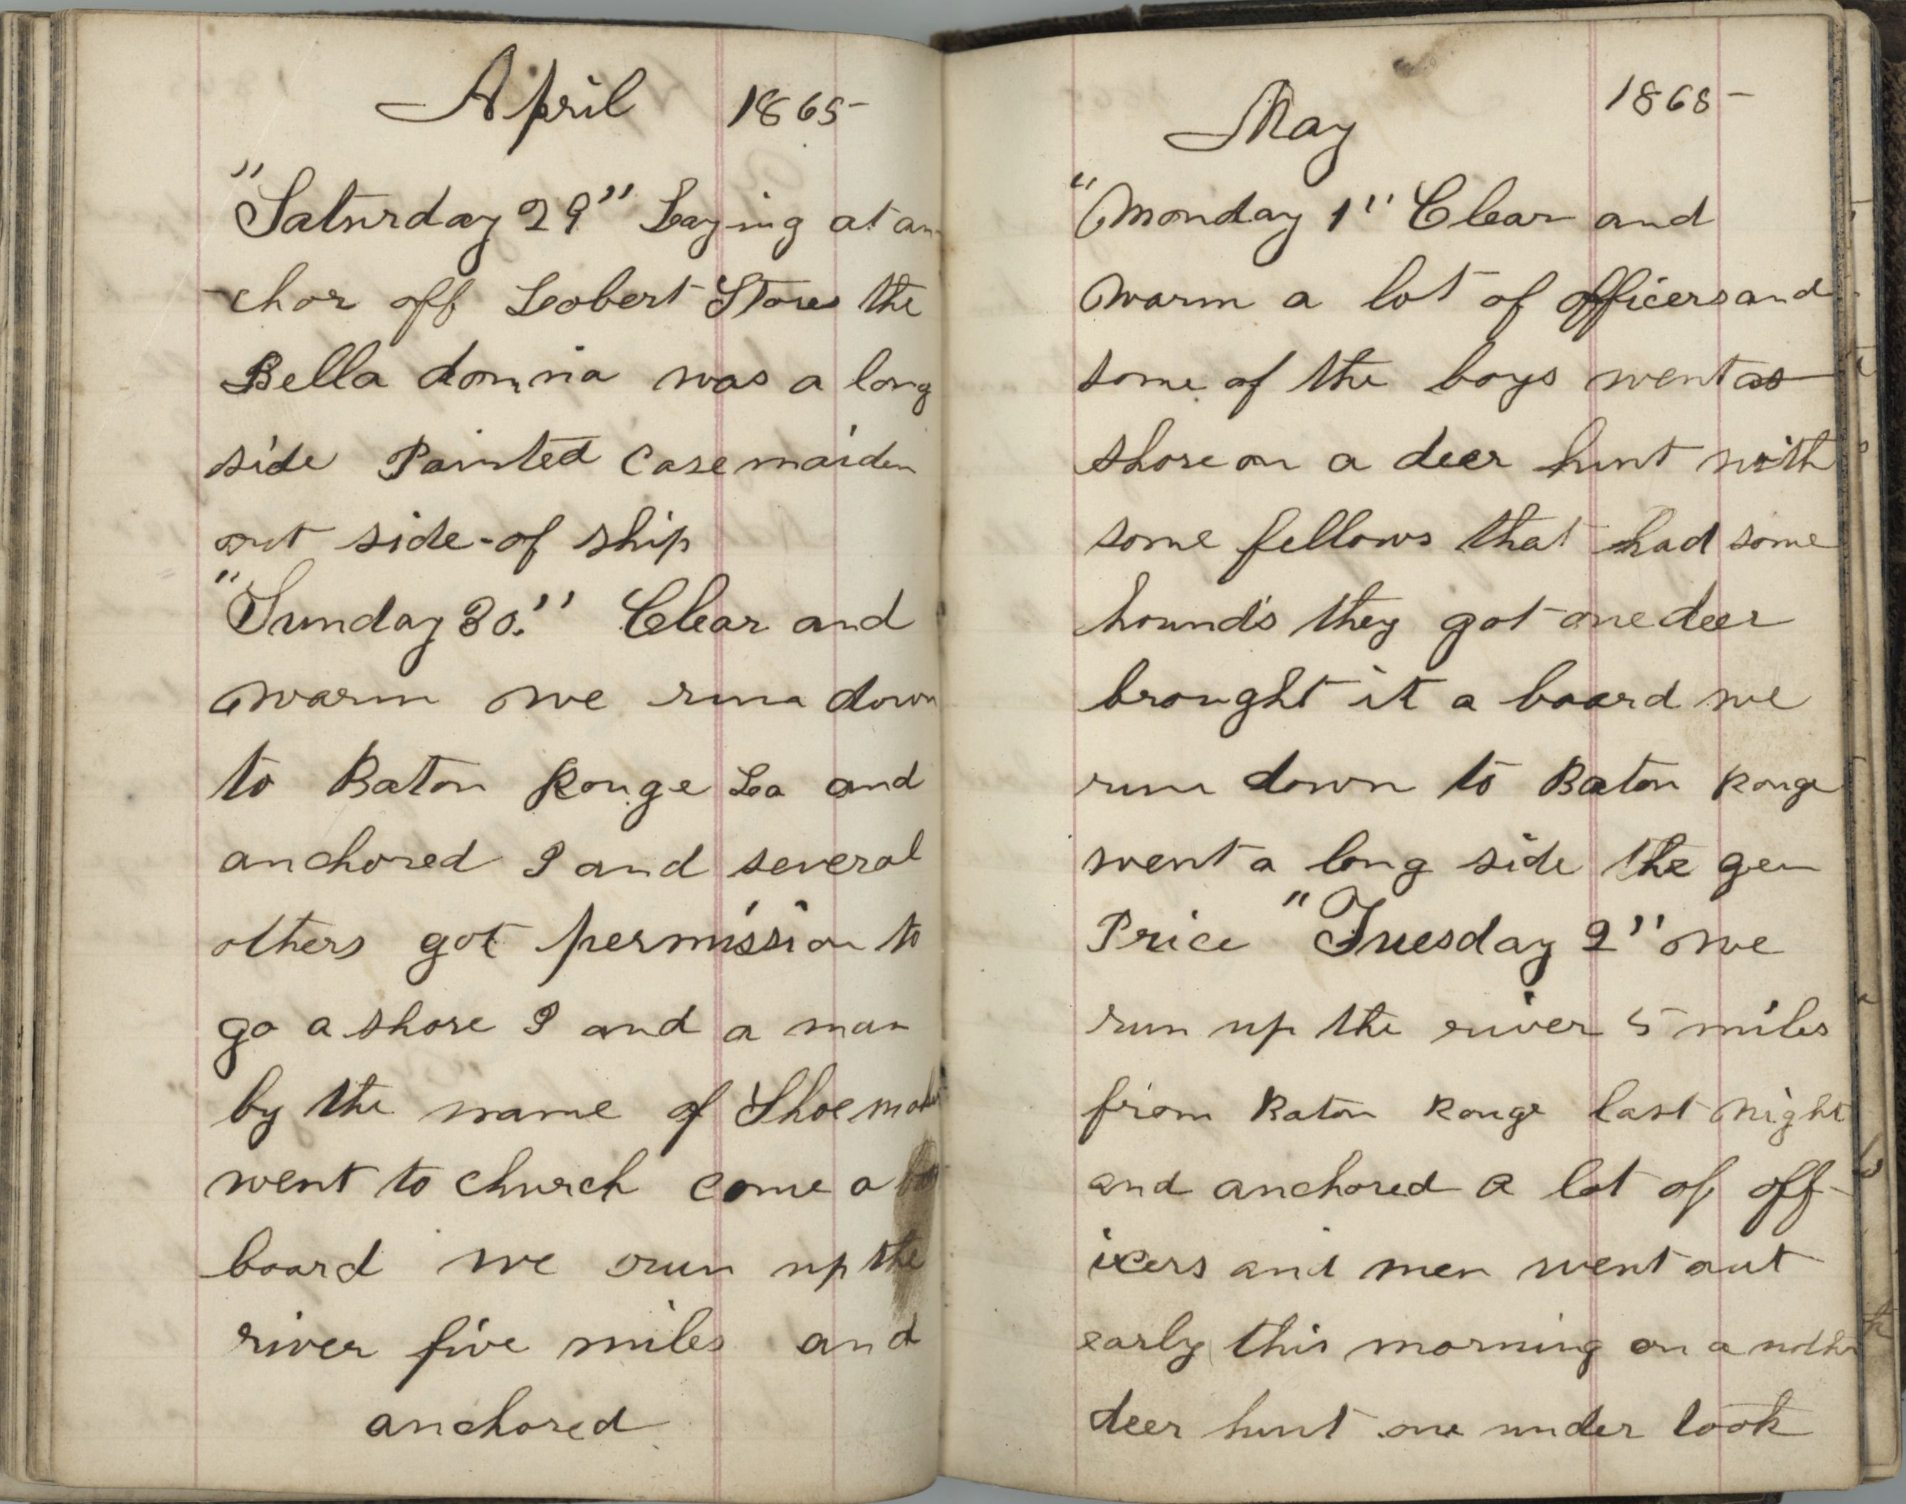 April 1865
"Saturday 29" Laying at an
chor off Lobert Stores the
Bella donna was a long
side Painted casemaiden
out side of ship
"Sunday 30." Clear and
warm we run down
to Baton Rouge La and
anchored I and several
others got permission to
go a shore I and a man
by the name of Shoemaker
went to church come a
board we run up the
river five miles and
anchored
May 1865
"Monday 1" Clear and
warm a lot of officers and
some of the boys went a
shore on a deer hunt with
some fellows that had some
hounds they got one deer
brought it a board we
run down to Baton Rouge
went a long side the gen
Price "Tuesday 2" we
run up the river 5 miles
from Baton Rouge last night
and anchored a lot of off
icers and men went out
early this morning on a nother
deer hunt one under look